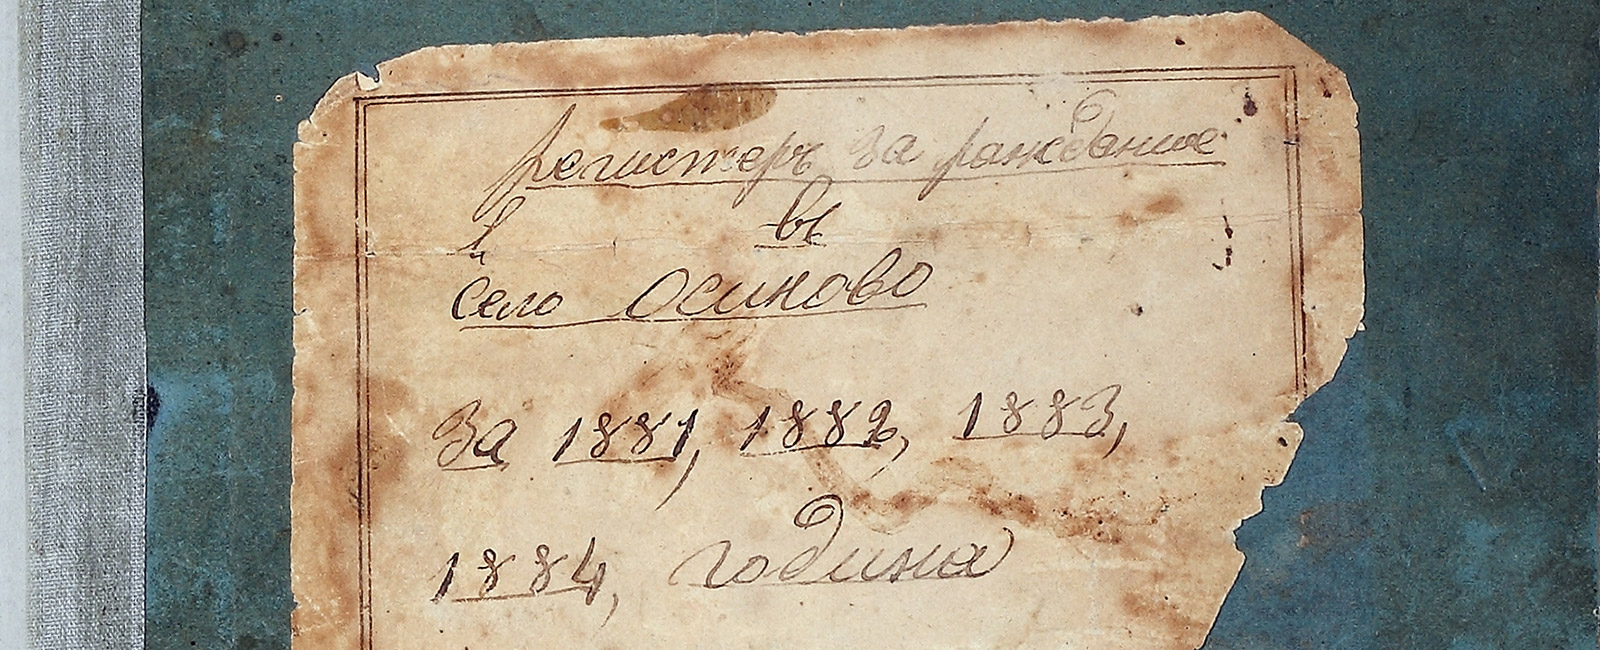 регистеръ за раждание
въ
село Осиково
За 1881, 1882, 1883,
1884, година